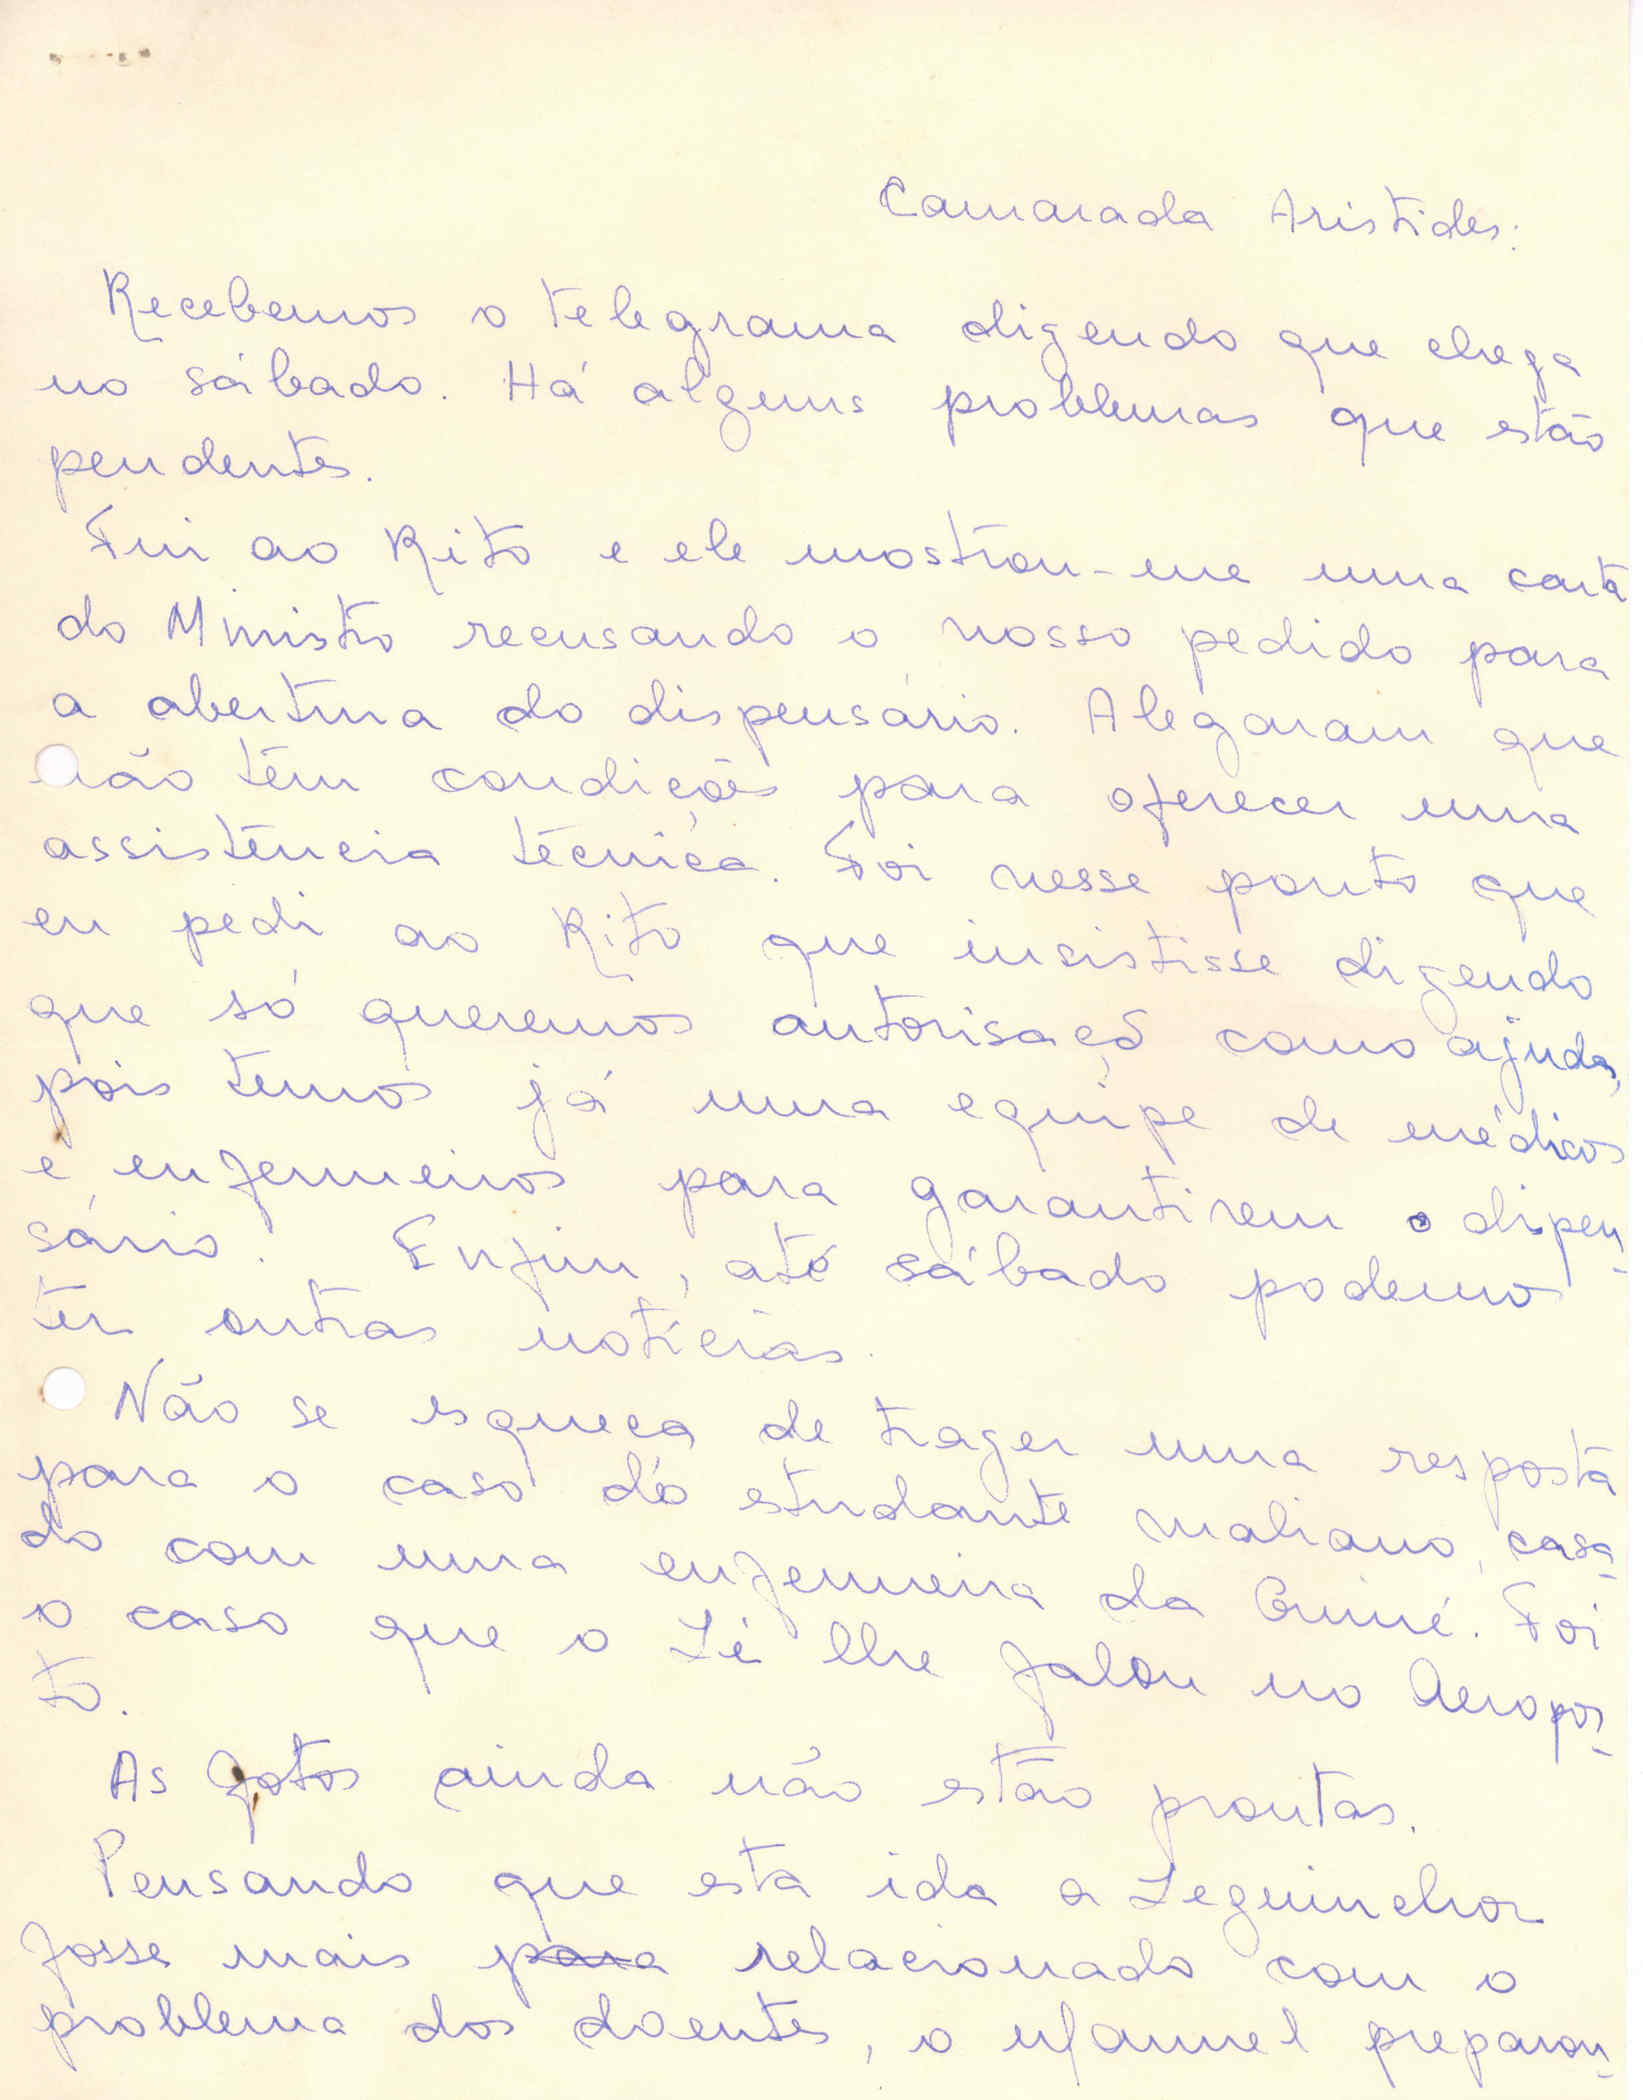 Camarada Aristides:
Recebemos o telegrama dizendo que chega
no sábado. Há alguns problemas que estão
pendentes.
Fui ao Rito e ele mostrou-me uma carta
do Ministro recusando o nosso pedido para
a abertura do dispensário. Alegaram que
não têm condições para oferecer uma
assistência técnica. Foi nesse ponto que
eu pedi ao Rito que insistisse dizendo
que só queremos autorisaçõ como ajuda,
pois temos já uma equipe de médicos
e enfermeiros para garantirem o dispen-
sário. Enfim, até sábado podemos
ter outras notícias.
Não se esqueça de trazer uma resposta
para o caso do estudante maliano, casa-
do com uma enfermeira da Guiné. Foi
o caso que o Lé lhe falou no Aeropor-
to.
As fotos ainda não estão prontas.
Pensando que esta ida a Zeguinchor
fosse mais para relacionado com o
problema dos doentes, o Manuel preparou-